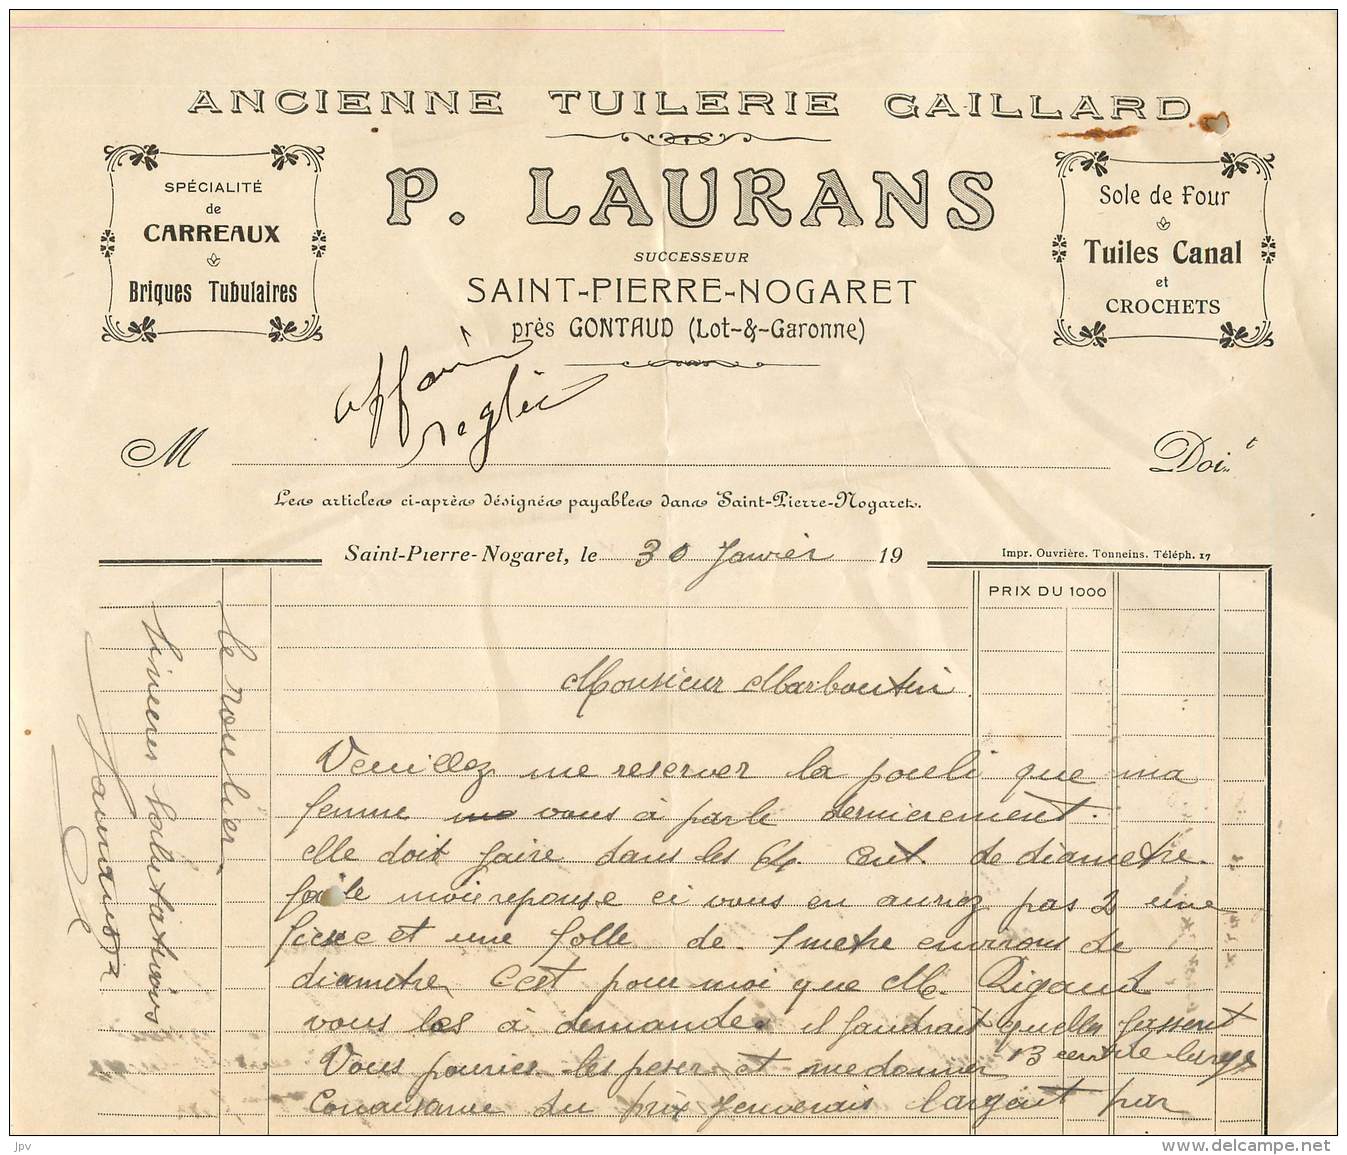 ANCIENNE TUILERIE GAILLARD
SPÉCIALITÉ
de
CARREAUX
Briques Tubulaires
P. LAURANS
SUCCESSEUR
SAINT-PIERRE-NOGARET
près GONTAUD (Lot-&-Garonne)
Sole de Four
Tuiles Canal
et
CROCHETS
affaire
reglée
M
Doit
Les articles ci-après désignés payables dans Saint-Pierre-Nogaret.
Saint-Pierre-Nogaret, le 30 Janvier 19
Impr. Ouvrière. Tonneins. Téléph. 17
PRIX DU 1000
Monsieur Marboutin
Veuillez me reserver la pouli que ma
femme vous à parle dernierement.
elle doit faire dans les 64 cent. de diametre.
faite moi reponse ci vous en auriez pas 2 une
ficsee et une folle de 1 metre environs de
diametre C'est pour moi que M. Rigaud
vous les à demande il faudrait quelles fassent
13 centime large
Vous pouriez les peser et me donner
Conaisance du prix J'enverais l'argent par
le roulier
Sinceres Salutations
Laurans
jpv
www.delcampe.net